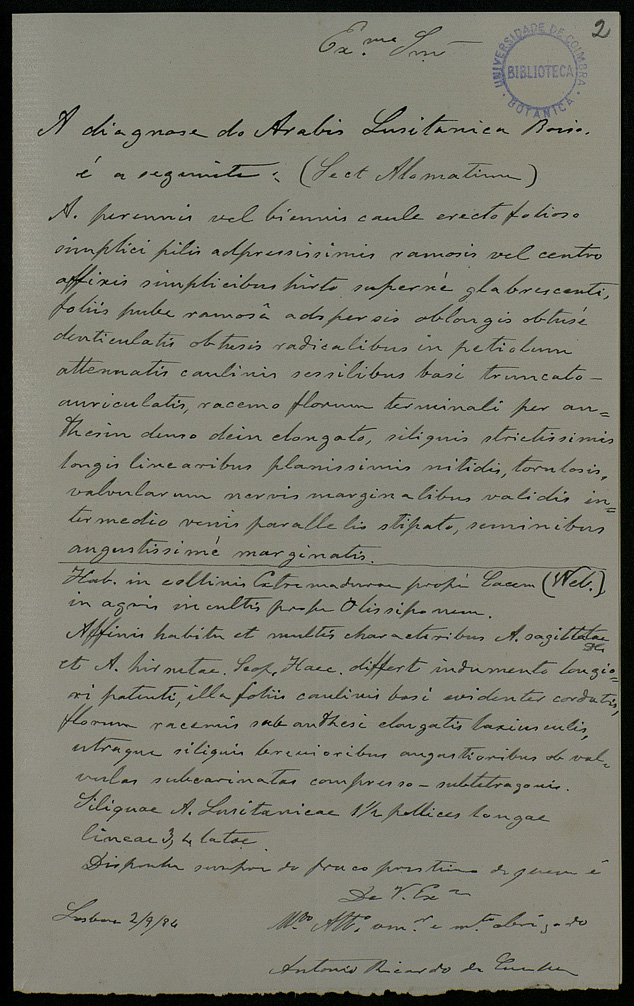 2
UNIVERSIDADE DE COIMBRA
BIBLIOTECA
BOTANICA
Ex.mo Snr
A diagnose do Arabis Lusitanica Boiss.
é a seguinte: (Sect Alomatium)
A. perennis vel biennis caule erecto folioso
simplici pilis adpressissimis ramosis vel centro
affixis simplicibus hirto supernè glabrescenti,
foliis pube ramosâ adspersis oblongis obtusè
denticulatis obtusis radicalibus in petiolum
attenuatis caulinis sessilibus basi truncato-
auriculatis, racemo florum terminali per an=
thesin denso dein elongato, siliquis strictissimis
longis linearibus planissimis nitidis, torulosis,
valvularum nervis marginalibus validis in=
termedio venis parallelis stipato, seminibus
angustissimè marginatis.
Hab. in collinis Extremadurae propè Cacem (Wel.)
in agris incultis prope Olissiponem.
Affinis habitu et multis characteribus A. sagittatae
et A. hirsutae. Scop. Haec differt indumento longio=
ri patenti, illa foliis caulinis basi evidenter cordatis,
florum racemis sub anthesi elongatis laxiusculis,
utraque siliquis brevioribus angustioribus ob val=
vulas subcarinatas compresso-subtetragonis.
Siliquae A. Lusitanicae 1½ pollices longae
lineae 3/4 latae
Disponha sempre do pouco prestimo de quem é
De V. Ex.a
Lisboa 2/9/84
M.to Att.o am.o e m.to obrigado
Antonio Ricardo da Cunha